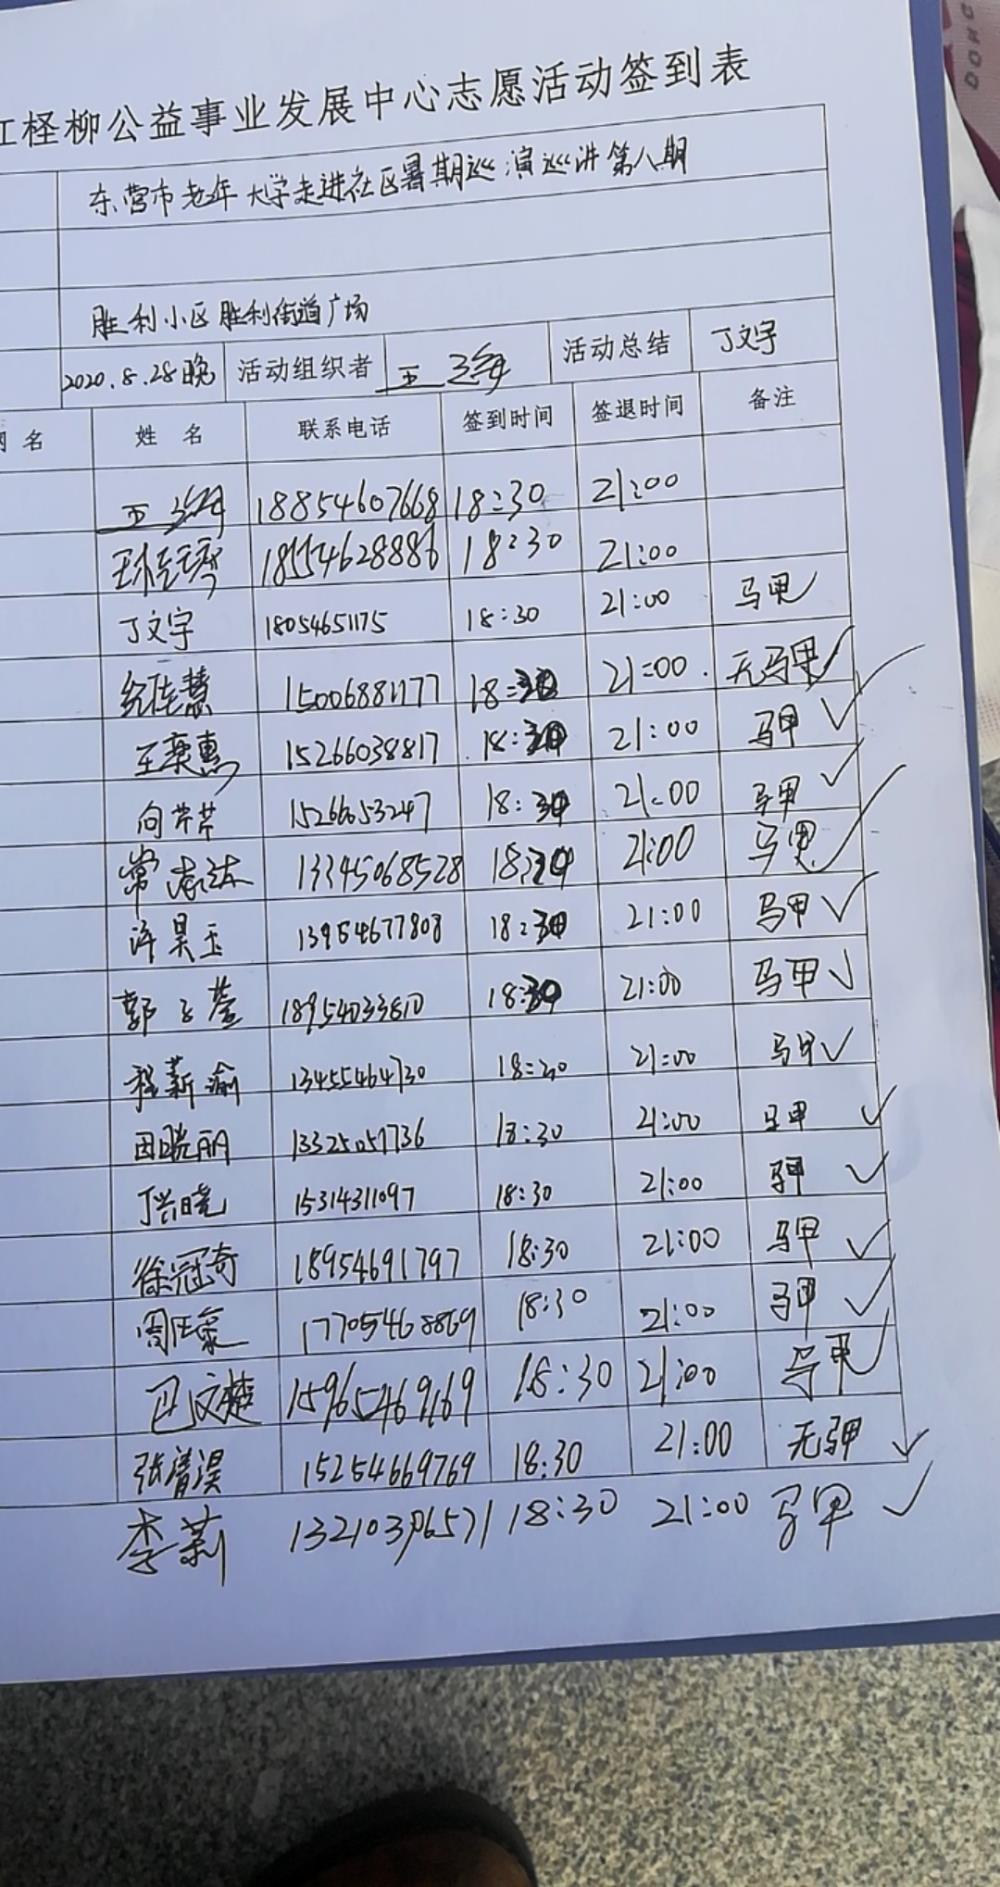 红柽柳公益事业发展中心志愿活动签到表
东营市老年大学走进社区暑期巡演巡讲第八期
胜利小区胜利街道广场
2020.8.28晚 活动组织者 王海 活动总结 丁文宇
网名 姓名 联系电话 签到时间 签退时间 备注
王海 18854607668 18:30 21:00
王桂琴 18554628886 18:30 21:00
丁文宇 18054651175 18:30 21:00 马甲
纪佳慧 15006881177 18:30 21:00 无马甲 ✓
王奕惠 15266038817 18:30 21:00 马甲 ✓
向芹芹 15266053247 18:30 21:00 马甲 ✓
常志达 13345068528 18:30 21:00 马甲 ✓
许昊玉 13954677808 18:30 21:00 马甲 ✓
郭子萱 18954033610 18:30 21:00 马甲 ✓
程薪瑜 13455464730 18:30 21:00 马甲 ✓
田晓丽 13325057736 18:30 21:00 马甲 ✓
丁兴晓 15314311097 18:30 21:00 马甲 ✓
徐冠奇 18954691797 18:30 21:00 马甲 ✓
周 17705468869 18:30 21:00 马甲 ✓
巴文楚 15965469169 18:30 21:00 马甲 ✓
张清淏 15254669769 18:30 21:00 无马甲 ✓
李莉 13210396571 18:30 21:00 马甲 ✓